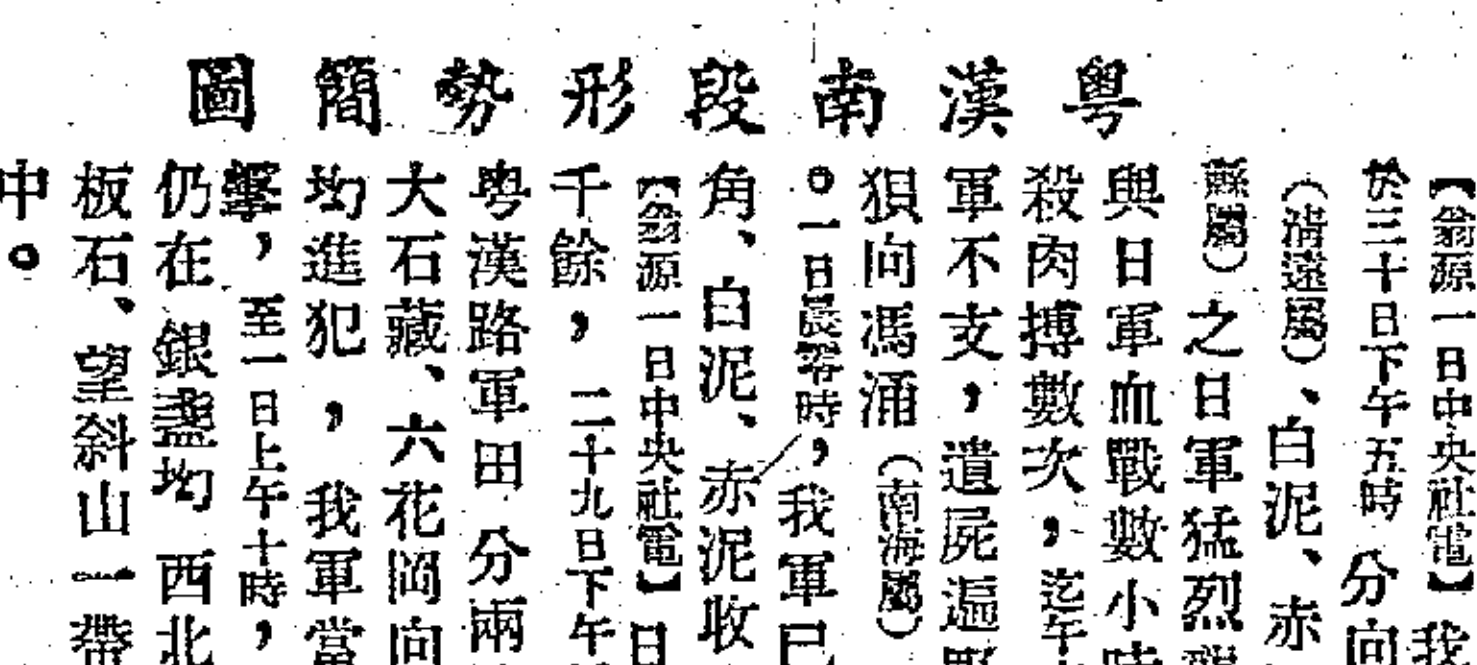 粵漢南段形勢簡圖
【翁源一日中央社電】我
於三十日下午五時分向
(清遠屬)、白泥、赤
縣屬)之日軍猛烈
與日軍血戰數小時
殺肉搏數次,迄午
軍不支,遺屍遍野
狽向馮涌(南海屬)
。一日晨零時,我軍已
角、白泥、赤泥收
【翁源一日中央社電】日
千餘,二十九日下午
粵漢路軍田分兩
大石藏、六花岡向
坳進犯,我軍當
擊,至一日上午十時,
仍在銀盞坳西北
板石、望斜山一帶
中。